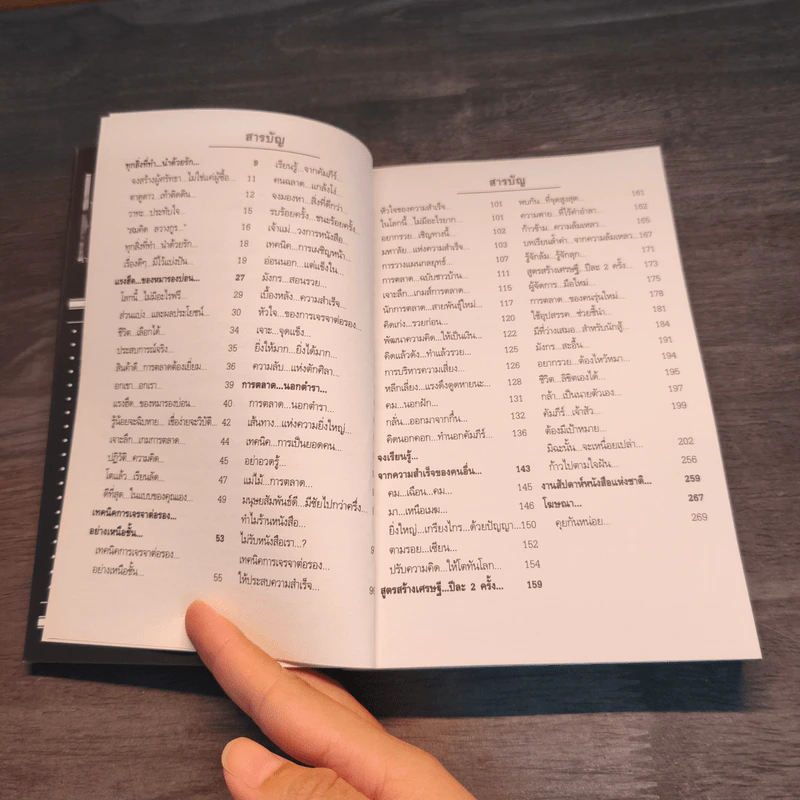 สารบัญ
ทุกสิ่งที่ทำ...นำด้วยรัก... 9
จงสร้างผู้ศรัทธา...ไม่ใช่แค่ผู้ซื้อ... 11
ตาดูดาว...เท้าติดดิน... 12
วาทะ...ประทับใจ... 15
"สมคิด ลวางกูร..." 16
ทุกสิ่งที่ทำ...นำด้วยรัก... 18
เรื่องดีๆ...มีไว้แบ่งปัน... 19
แรงฮึด...ของหมารองบ่อน... 27
โลกนี้ ไม่มีอะไรฟรี... 29
ส่วนแบ่ง...และผลประโยชน์... 30
ชีวิต...เลือกได้... 34
ประสบการณ์จริง... 35
สินค้าดี...การตลาดต้องเยี่ยม... 36
อกเขา...อกเรา... 39
แรงฮึด...ของหมารองบ่อน... 40
รู้น้อยจะฉิบหาย...เชื่อง่ายจะวิบัติ... 42
เจาะลึก...เกมการตลาด... 44
ปฏิวัติ...ความคิด... 45
โตแล้ว...เรียนลัด... 47
ดีที่สุด...ในแบบของคุณเอง... 49
เทคนิคการเจรจาต่อรอง...
อย่างเหนือชั้น... 53
เทคนิคการเจรจาต่อรอง...
อย่างเหนือชั้น... 55
เรียนรู้...จากคัมภีร์...
คนฉลาด...แกล้งโง่...
จงมองหา...สิ่งที่ดีกว่า...
รบร้อยครั้ง...ชนะร้อยครั้ง...
เจ้าแม่...วงการหนังสือ...
เทคนิค...การเผชิญหน้า...
อ่อนนอก...แต่แข็งใน...
มังกร...สอนรวย...
เบื้องหลัง...ความสำเร็จ...
หัวใจ...ของการเจรจาต่อรอง...
เจาะ...จุดแข็ง...
ยิ่งให้มาก...ยิ่งได้มาก...
ความลับ...แห่งตักศิลา...
การตลาด...นอกตำรา...
การตลาด...นอกตำรา...
เส้นทาง...แห่งความยิ่งใหญ่...
เทคนิค...การเป็นยอดคน...
อย่าอวดรู้...
แม่ไม้...การตลาด...
มนุษยสัมพันธ์ดี...มีชัยไปกว่าครึ่ง...
ทำไมร้านหนังสือ...
ไม่รับหนังสือเรา...?
เทคนิคการเจรจาต่อรอง...
ให้ประสบความสำเร็จ...
สารบัญ
หัวใจของความสำเร็จ... 101
ในโลกนี้...ไม่มีอะไรยาก... 101
อยากรวย...เชิญทางนี้... 102
มหาลัย...แห่งความสำเร็จ... 103
การวางแผนกลยุทธ์... 107
การตลาด...ฉบับชาวบ้าน... 111
เจาะลึก...เกมส์การตลาด... 114
นักการตลาด...สายพันธุ์ใหม่... 117
คิดเก่ง...รวยก่อน... 120
พัฒนาความคิด...ให้เป็นเงิน... 122
คิดแล้วดัง...ทำแล้วรวย... 125
การบริหารความเสี่ยง... 126
หลีกเลี่ยง...แรงดึงดูดหายนะ... 128
คม...นอกฝัก... 131
กลั่น...ออกมาจากกึ๋น... 132
คิดนอกคอก...ทำนอกคัมภีร์... 136
จงเรียนรู้...
จากความสำเร็จของคนอื่น... 143
คม...เฉือน...คม... 145
มา...เหนือเมฆ... 146
ยิ่งใหญ่...เกรียงไกร...ด้วยปัญญา...150
ตามรอย...เซียน... 152
ปรับความคิด...ให้โตทันโลก... 154
สูตรสร้างเศรษฐี...ปีละ 2 ครั้ง... 159
พบกัน...ที่จุดสูงสุด... 161
ความตาย...ที่ไร้คำอำลา... 162
ก้าวข้าม...ความล้มเหลว... 165
บทเรียนล้ำค่า...จากความล้มเหลว... 167
รู้จักล้ม...รู้จักลุก... 171
สูตรสร้างเศรษฐี...ปีละ 2 ครั้ง... 173
ผู้จัดการ...มือใหม่... 175
การตลาด...ของคนรุ่นใหม่... 178
ใช้อุปสรรค...ช่วยชี้นำ... 181
มีที่ว่างเสมอ...สำหรับนักสู้... 184
มังกร...สะอื้น... 191
อยากรวย...ต้องไหว้หมา... 194
ชีวิต...ลิขิตเองได้... 195
กล้า...เป็นนายตัวเอง... 197
คัมภีร์...เจ้าสัว... 199
ต้องมีเป้าหมาย...
มิฉะนั้น...จะเหนื่อยเปล่า... 202
ก้าวไปตามใจฝัน... 256
งานสัปดาห์หนังสือแห่งชาติ... 259
โฆษณา... 267
คุยกันหน่อย... 269